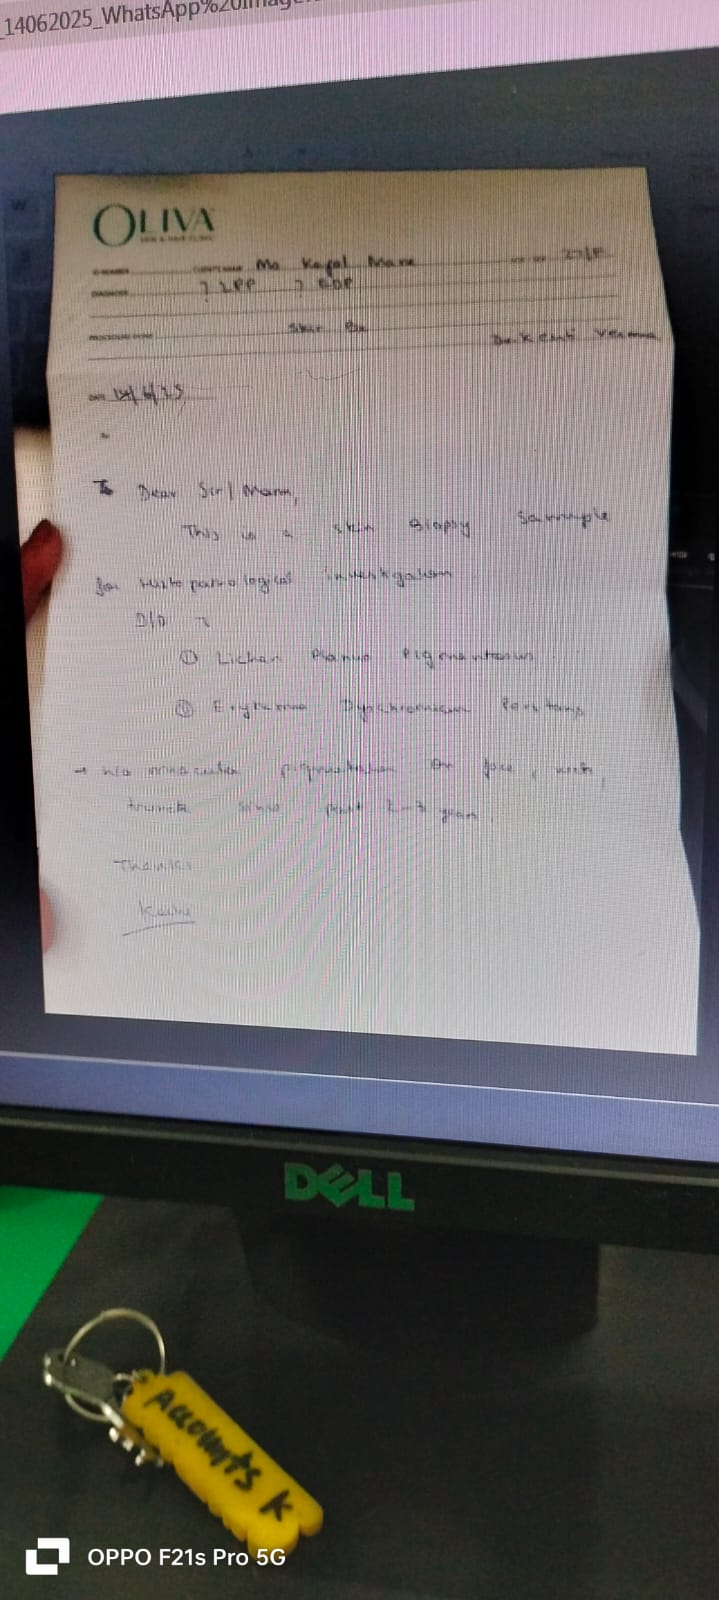 _14062025_WhatsApp%20Image
OLIVA
SKIN & HAIR CLINIC
Ms Kajal Mane 27/F
? LPP ? EDP
Skin Bx
Dr. Kanti Verma
DATE 14/6/25
To Dear Sir/Mam,
This is a skin Biopsy Sample
for histopathological investigation
D/D
① Lichen Planus Pigmentosus
② Erythema Dyschromicum Perstans
→ h/o macular pigmentation on face, neck,
since past 2-3 years.
Thanks
DELL
Accounts K
OPPO F21s Pro 5G